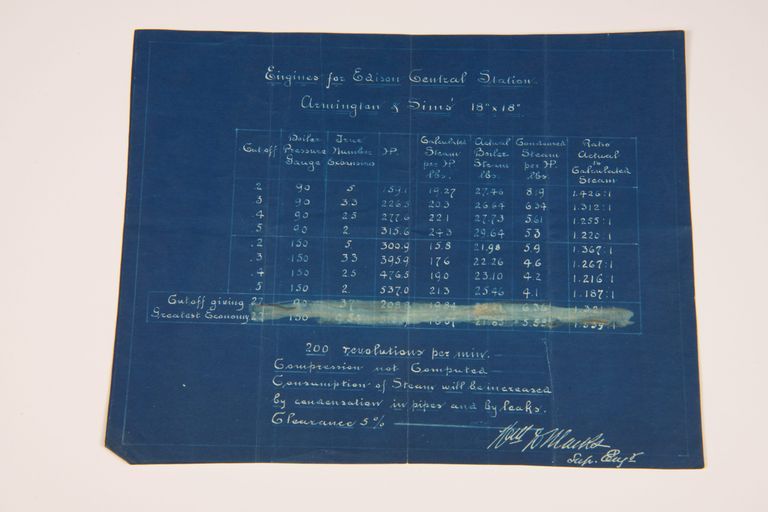 Engines for Edison Central Station.
Armington & Sims' 18" x 18"
Cut off Boiler Pressure Gauge True Number Expansions I.P. Calculated Steam per I.P. lbs. Actual Boiler Steam lbs. Condensed Steam per I.P. lbs. Ratio Actual to Calculated Steam
.2 90 5 159.1 19.27 27.46 8.19 1.426:1
.3 90 3.3 226.5 20.3 26.64 6.34 1.312:1
.4 90 2.5 277.6 22.1 27.73 5.61 1.255:1
.5 90 2 315.6 24.3 29.64 5.3 1.220:1
.2 150 5 300.9 15.8 21.98 5.9 1.367:1
.3 150 3.3 395.9 17.6 22.26 4.6 1.267:1
.4 150 2.5 476.5 19.0 23.10 4.2 1.216:1
.5 150 2 537.0 21.3 25.46 4.1 1.187:1
Cut off giving .27 90 3.7
Greatest Economy 150
200 revolutions per min.
Compression not Computed
Consumption of Steam will be increased
by condensation in pipes and by leaks.
Clearance 5%
Sup. Engr